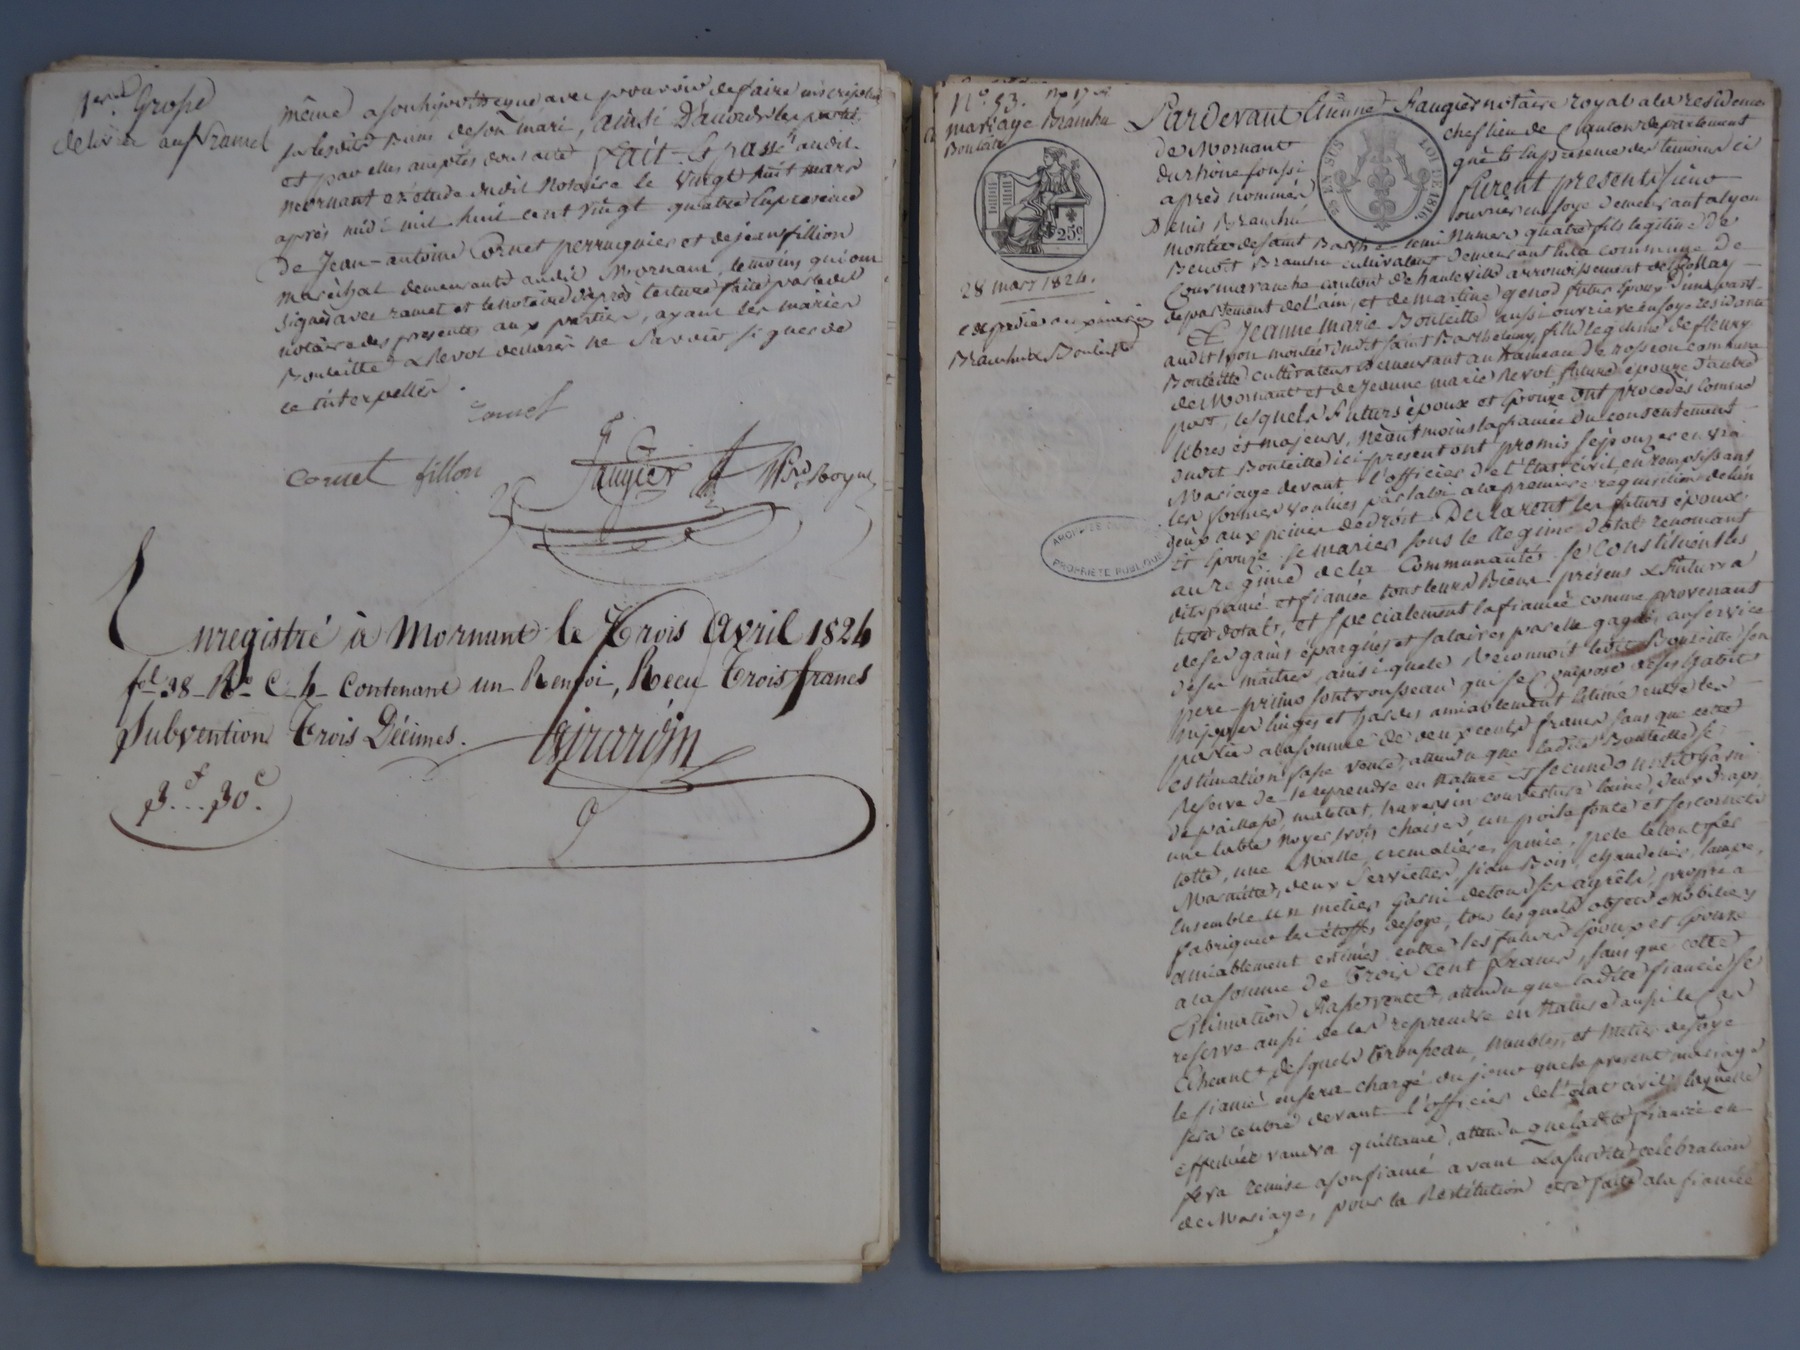 1ere Grosse
delivrée au sr Ramel
même a son hipotheque avec pouvoir de faire inscription
sur les dits biens de son mari, Ainsi D'accord les parties
et par elles acceptés dont acte Fait & Passé audit
mornant en étude dudit Notaire le Vingt huit mars
après midi mil huit cent vingt quatre En presence
De Jean-antoine Cornet perruquier et de jean fillion
maréchal demeurants audit Mornant, temoins qui ont
signés avec ramel et le notaire d'après lecture faite par ledit
notaire des presentes aux parties, ayant les mariés
Bouteille & Revol declarés ne Savoir signer de
ce interpellés.
cornet
cornet fillon
Faugier
Enregistré à Mornant le Trois Avril 1824
fol 38 Ro C. 4 Contenant un Renvoi, Recu Trois francs
Subvention Trois Décimes.
Girardin
3.f .. 30.c
No. 53.
mariage Branchu
Bouteille
25c
28 mars 1824.
Expedié aux mariés
Branchu & Bouteille
EN SUS LOI DE 1816.
ARCHIVES
PROPRIETE PUBLIQUE
Pardevant Etienne Faugier notaire royal a la residence
de Mornant chef lieu de Canton departement
du rhône soussi gné et En presence des temoins ci
après nommés furent presents sieur
Denis Branchu ouvrier en soye Demeurant a lyon
montée de saint Barthelemi Numero quatre fils legitime de
Benoît Branchu cultivateur Demeurant En la commune de
Cormaranche canton de hauteville arrondissement de
departement de l'ain, et de martine genod futur Epoux D'une part
Et Jeanne Marie Bouteille aussi ouvriere en soye residante
audit lyon montée dudit saint Barthelemy, fille legitime de fleury
Bouteille cultivateur Demeurant au hameau de rosseon commune
de Mornant et de Jeanne marie Revol future épouze D'autre
part, lesquels Futurs époux et Epouze ont procedés Comme
libres et majeurs, néantmoins la fiancée Du consentement
dudit Bouteille ici present ont promis se épouzer en vrai
Mariage devant l'officier de l'Etat civil, en remplissant
les formes voulues par la loi a la premiere requisition de l'un
d'eux aux peines de droit. Declarant les futurs époux
et Epouze se marier sous le Regime dotal renoncant
au régime de la Communauté. Se Constituent les
dits fiancé et fiancée tous leurs Biens présens & Futurs a
titre dotals, et spécialement la fiancée comme provenant
de ses gains épargnes et salaires par elle gagnés au service
de ses maîtres, ainsi que le reconnoit ledit Bouteille son
pere primo son trousseau qui se Compose de ses habits
linges et hardes amiablement estimé entre les
parties a la somme de deux cents francs sans que cette
estimation fasse vente, attendu que ladite Bouteille se
reserve de le reprendre en Nature & secundo un lit garni
de paillasse, matelat, traversin couverture laine, deux draps
une table noyer, trois chaises, un poile fonte et ses cornets
une Malle, cremaliere, pince, pele le tout fer
Marmitte, deux Serviettes, seau Bois, chandelier, lampe,
Ensemble un metier garni de tous ses agrêts, propre a
fabriquer les étoffes de soye, tous lesquels objets mobiliers
amiablement estimés entre les futurs époux et Epouze
a la somme de Trois Cent francs, sans que cette
Estimation fasse vente, attendu que ladite fiancée se
reserve aussi de les reprendre en Nature aussi le Cas
Echeant, desquels trousseau, meubles, et métier de soye
le fiancé en sera chargé du jour que le present mariage
sera célébré devant l'officier de l'état civil laquelle
vaudra quittance, attendu que ladite fiancée en
fera remise a son fiancé avant la susdite celebration
de Mariage, pour la Restitution etre faite a la fiancée